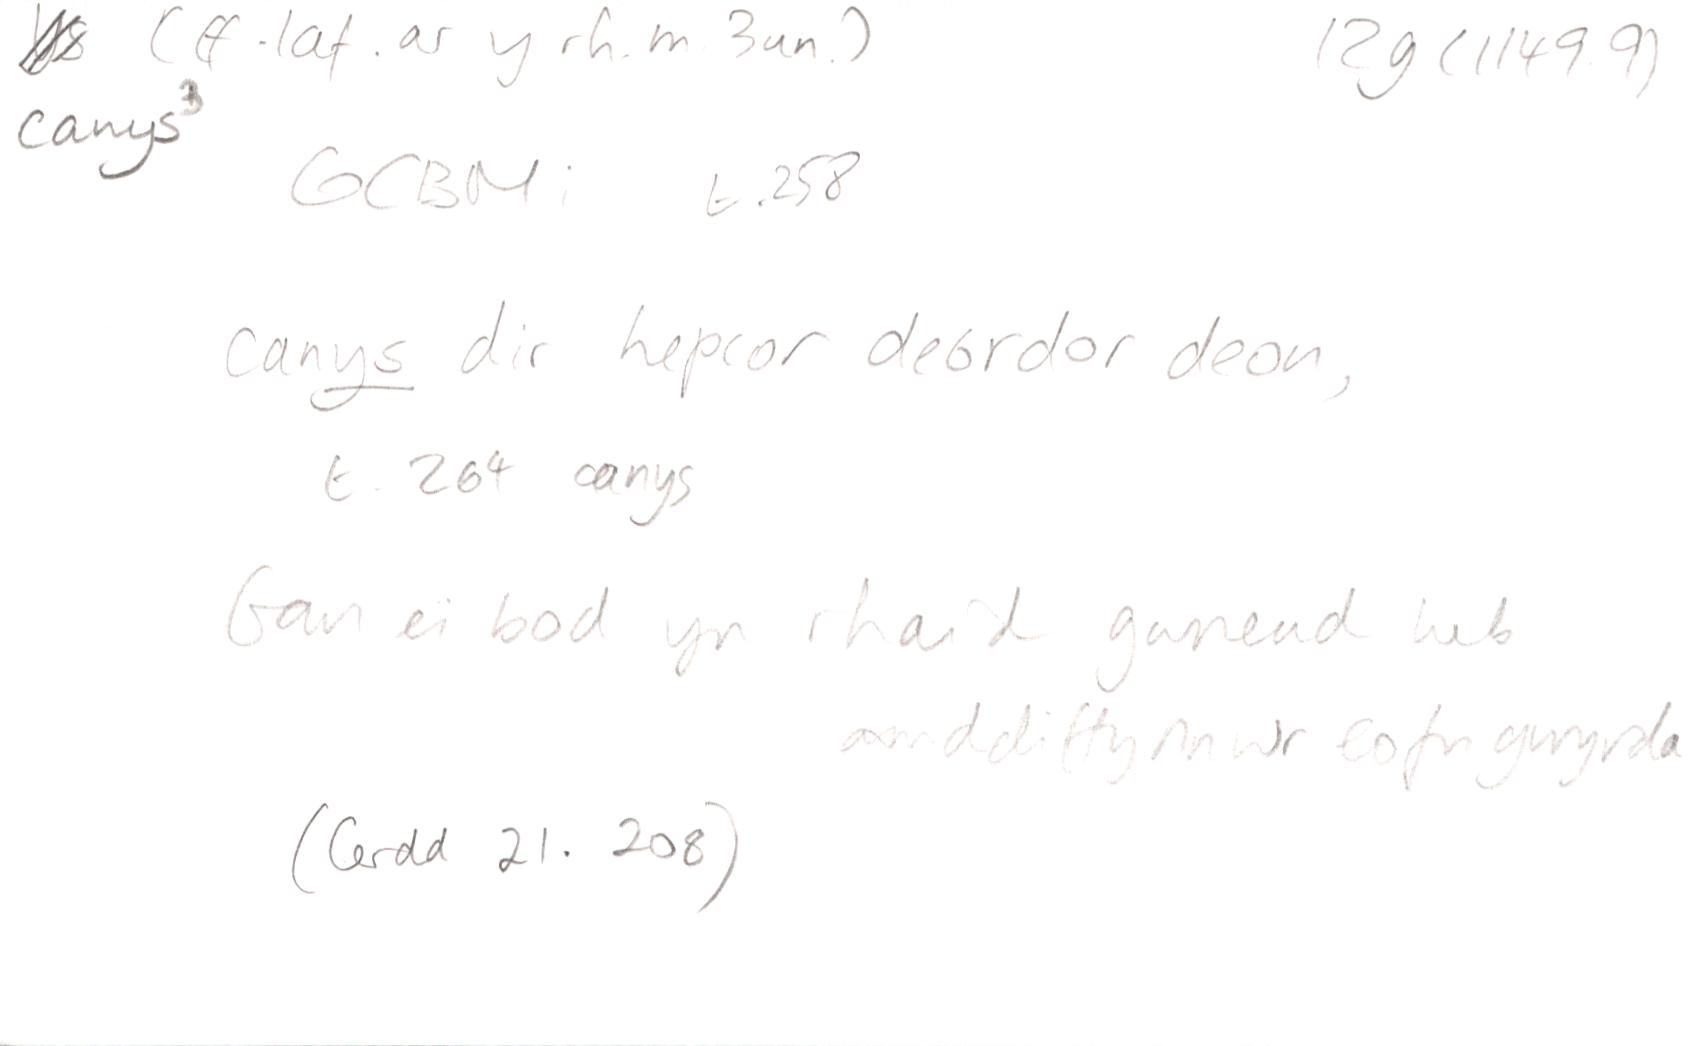 (ff. laf. ar y rh. m. 3 un.) 12g (1149. 9)
canys³
GCBM i t. 258
canys dir hepcor deordor deon,
t. 264 canys
Gan ei bod yn rhaid gwneud heb
amddiffynnwr eofn gwyrda
(Cerdd 21. 208)